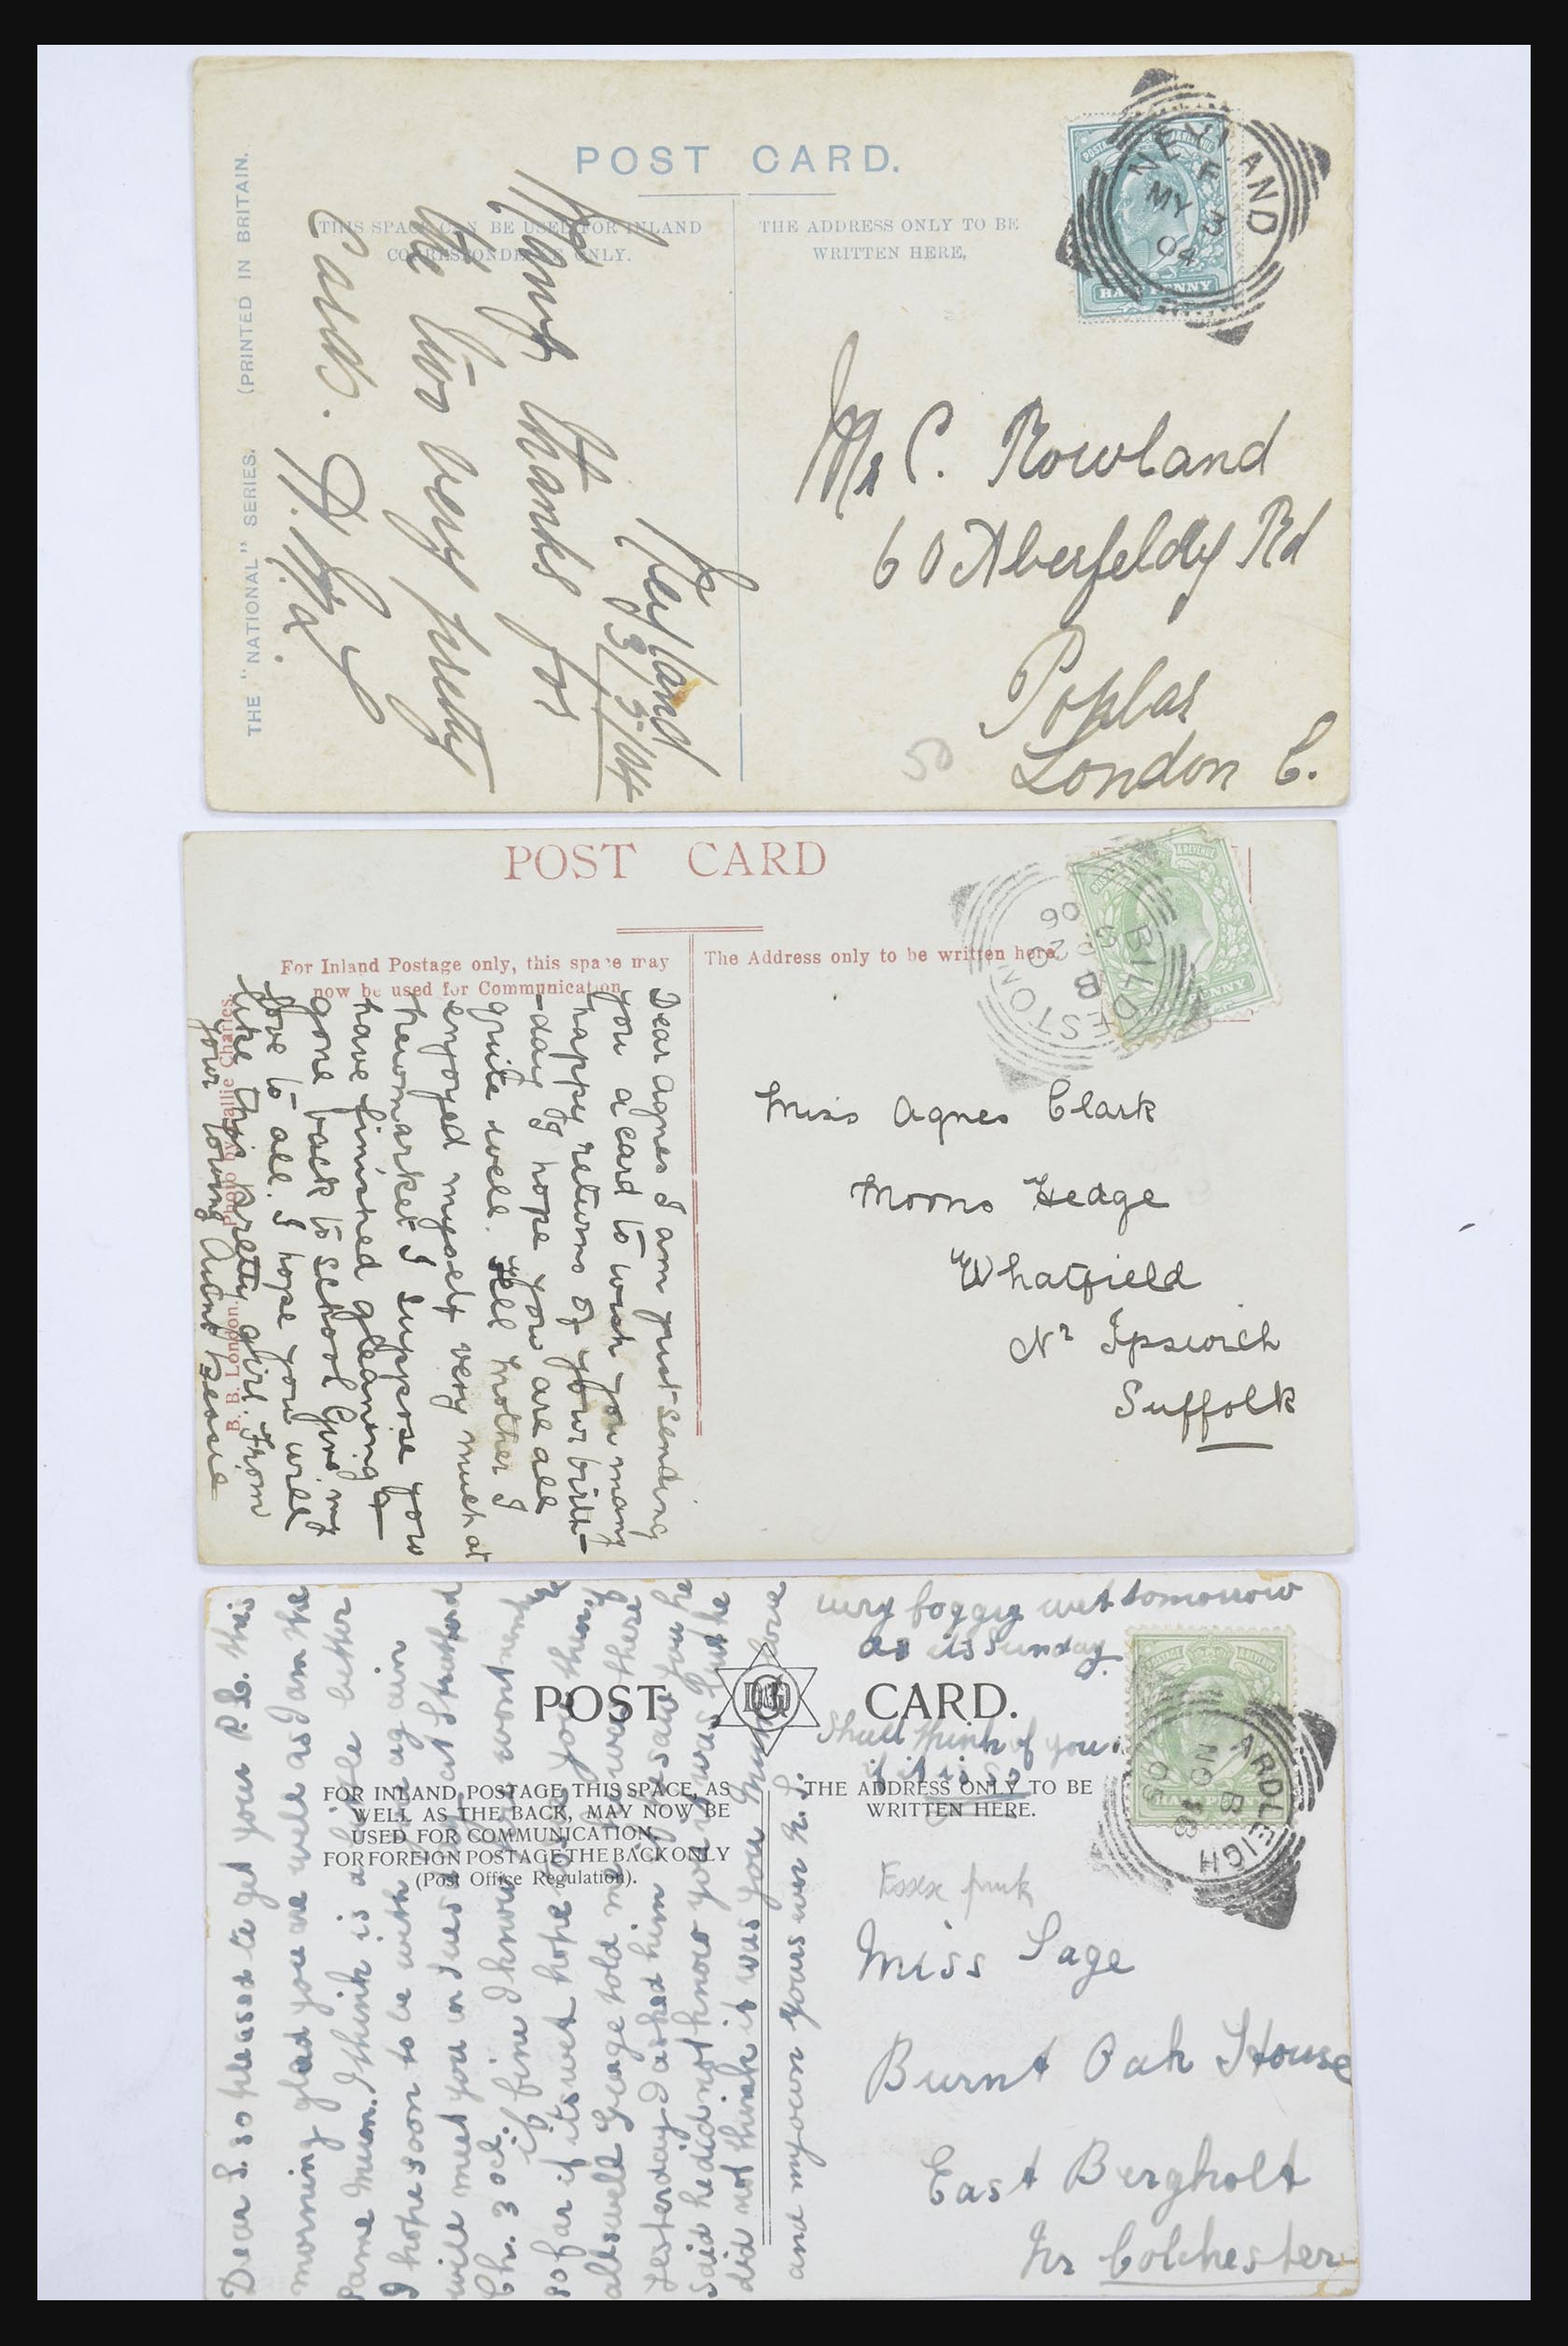 POST CARD.
THIS SPACE CAN BE USED FOR INLAND
CORRESPONDENCE ONLY.
THE ADDRESS ONLY TO BE
WRITTEN HERE,
THE "NATIONAL" SERIES. (PRINTED IN BRITAIN.
HALFPENNY
NEYLAND
F
MY 3
04
Neyland
3/5/04
Many thanks for
the two very pretty
Cards.
Mr C. Rowland
60 Aberfeldy Rd
Poplar
London E.
50
POST CARD
For Inland Postage only, this space may
now be used for Communication
The Address only to be written here.
B. B. London. Photo by Lallie Charles.
BILDESTON
B
06
Dear Agnes I am just sending
you a card to wish you many
happy returns of your birth-
-day I hope you are all
quite well. Tell Mother I
enjoyed myself very much at
Newmarket I suppose you
have finished gleaning &
gone back to school Give my
love to all. I hope you will
like this pretty girl. From
your loving Aunt Bessie
Miss Agnes Clark
Moons Hedge
Whatfield
Nr Ipswich
Suffolk
POST CARD.
FOR INLAND POSTAGE THIS SPACE, AS
WELL AS THE BACK, MAY NOW BE
USED FOR COMMUNICATION.
FOR FOREIGN POSTAGE THE BACK ONLY
(Post Office Regulation).
THE ADDRESS ONLY TO BE
WRITTEN HERE.
ARDLEIGH
B
NO 18
05
very foggy wet tomorrow
as its Sunday.
Shall think of you
if it is so
Dear S. so pleased to get your P.C. this
morning glad you are well as I am the
same Mum. I think is a little better
I hope soon to be with you again
will meet you on Tues at Stratford
Ch. 3 ocl. if fine I know you wont mind
so far if its wet hope to see you then,
all well George told me you was there
yesterday I asked him if he saw you he
said he did not know you was but he
did not think it was you
and my own yours ever
Miss Sage
Burnt Oak House
East Bergholt
Nr Colchester